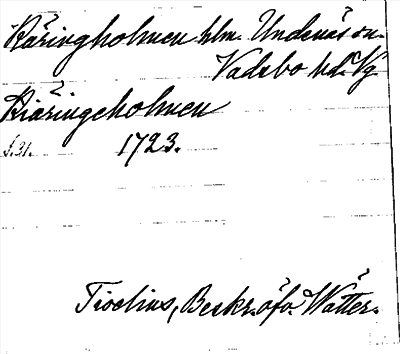 Käringholmen hlm. Undenäs sn.
Vadsbo hd. Vg.
Kiäringeholmen
s.31. 1723.
Tiselius, Beskr. öfv. Wätter.